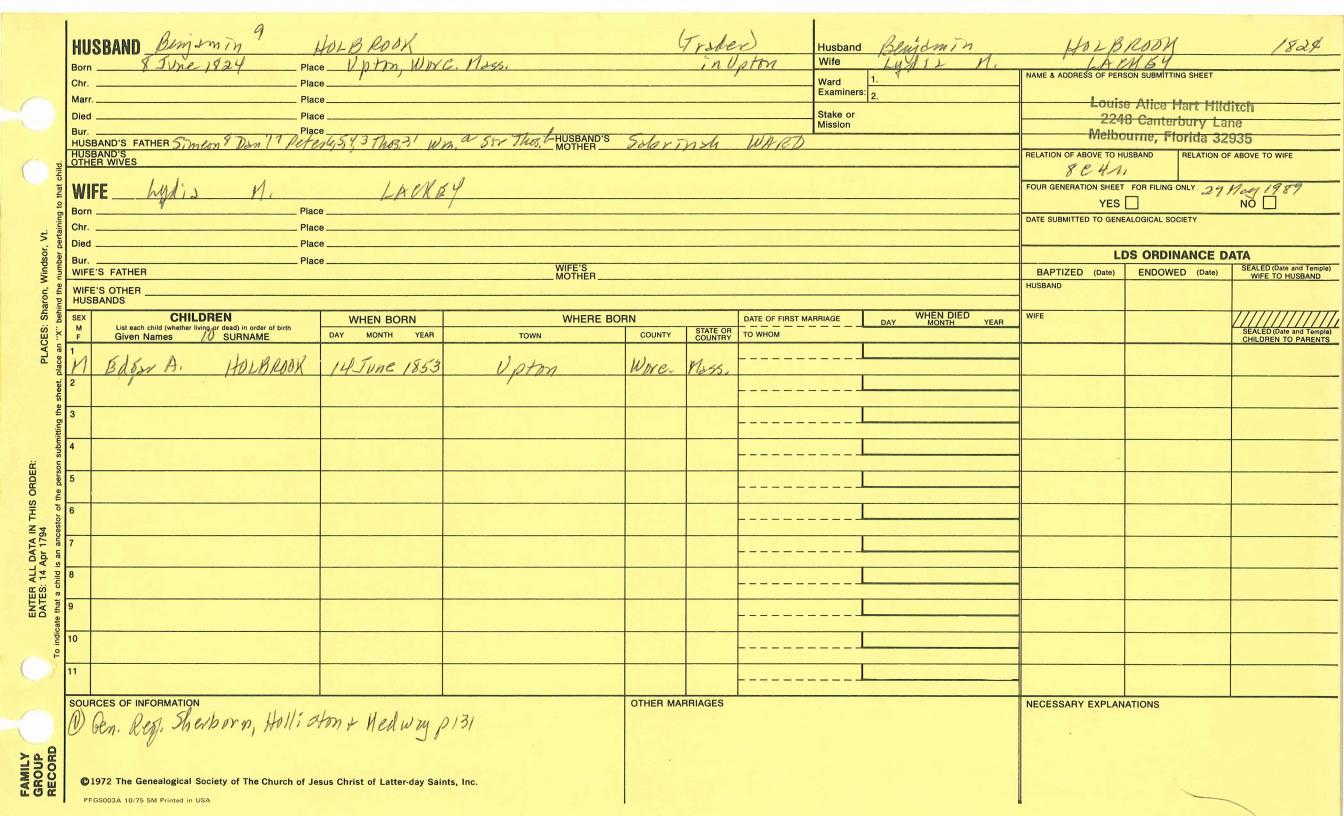 HUSBAND Benjamin 9 HOLBROOK (Trader)
Born 8 June 1824 Place Upton, Worc. Mass. in Upton
Chr. Place
Marr. Place
Died Place
Bur. Place
HUSBAND'S FATHER Simeon 8 Dan'l 7 Peter 6,5,4,3 Thos. Wm. Sir Thos. HUSBAND'S MOTHER Sabrinah WARD
HUSBAND'S OTHER WIVES
Husband Benjamin HOLBROOK 1824
Wife Lydia M. LACKEY
Ward Examiners: 1.
2.
Stake or Mission
NAME & ADDRESS OF PERSON SUBMITTING SHEET
Louise Alice Hart Hilditch
2248 Canterbury Lane
Melbourne, Florida 32935
RELATION OF ABOVE TO HUSBAND RELATION OF ABOVE TO WIFE
8C4r.
FOUR GENERATION SHEET FOR FILING ONLY 29 May 1989
YES NO
DATE SUBMITTED TO GENEALOGICAL SOCIETY
WIFE Lydia M. LACKEY
Born Place
Chr. Place
Died Place
Bur. Place
WIFE'S FATHER WIFE'S MOTHER
WIFE'S OTHER HUSBANDS
LDS ORDINANCE DATA
BAPTIZED (Date) ENDOWED (Date) SEALED (Date and Temple) WIFE TO HUSBAND
HUSBAND
WIFE
SEALED (Date and Temple) CHILDREN TO PARENTS
SEX M F
CHILDREN
List each child (whether living or dead) in order of birth
Given Names 10 SURNAME
WHEN BORN
DAY MONTH YEAR
WHERE BORN
TOWN COUNTY STATE OR COUNTRY
DATE OF FIRST MARRIAGE
TO WHOM
WHEN DIED
DAY MONTH YEAR
1 M Edgar A. HOLBROOK 14 June 1853 Upton Worc. Mass.
2
3
4
5
6
7
8
9
10
11
SOURCES OF INFORMATION
① Gen. Reg. Sherborn, Holliston & Medway p131
OTHER MARRIAGES
NECESSARY EXPLANATIONS
©1972 The Genealogical Society of The Church of Jesus Christ of Latter-day Saints, Inc.
PFGS003A 10/75 5M Printed in USA
FAMILY GROUP RECORD
ENTER ALL DATA IN THIS ORDER:
DATES: 14 Apr 1794 PLACES: Sharon, Windsor, Vt.
To indicate that a child is an ancestor of the person submitting the sheet, place an "X" behind the number pertaining to that child.